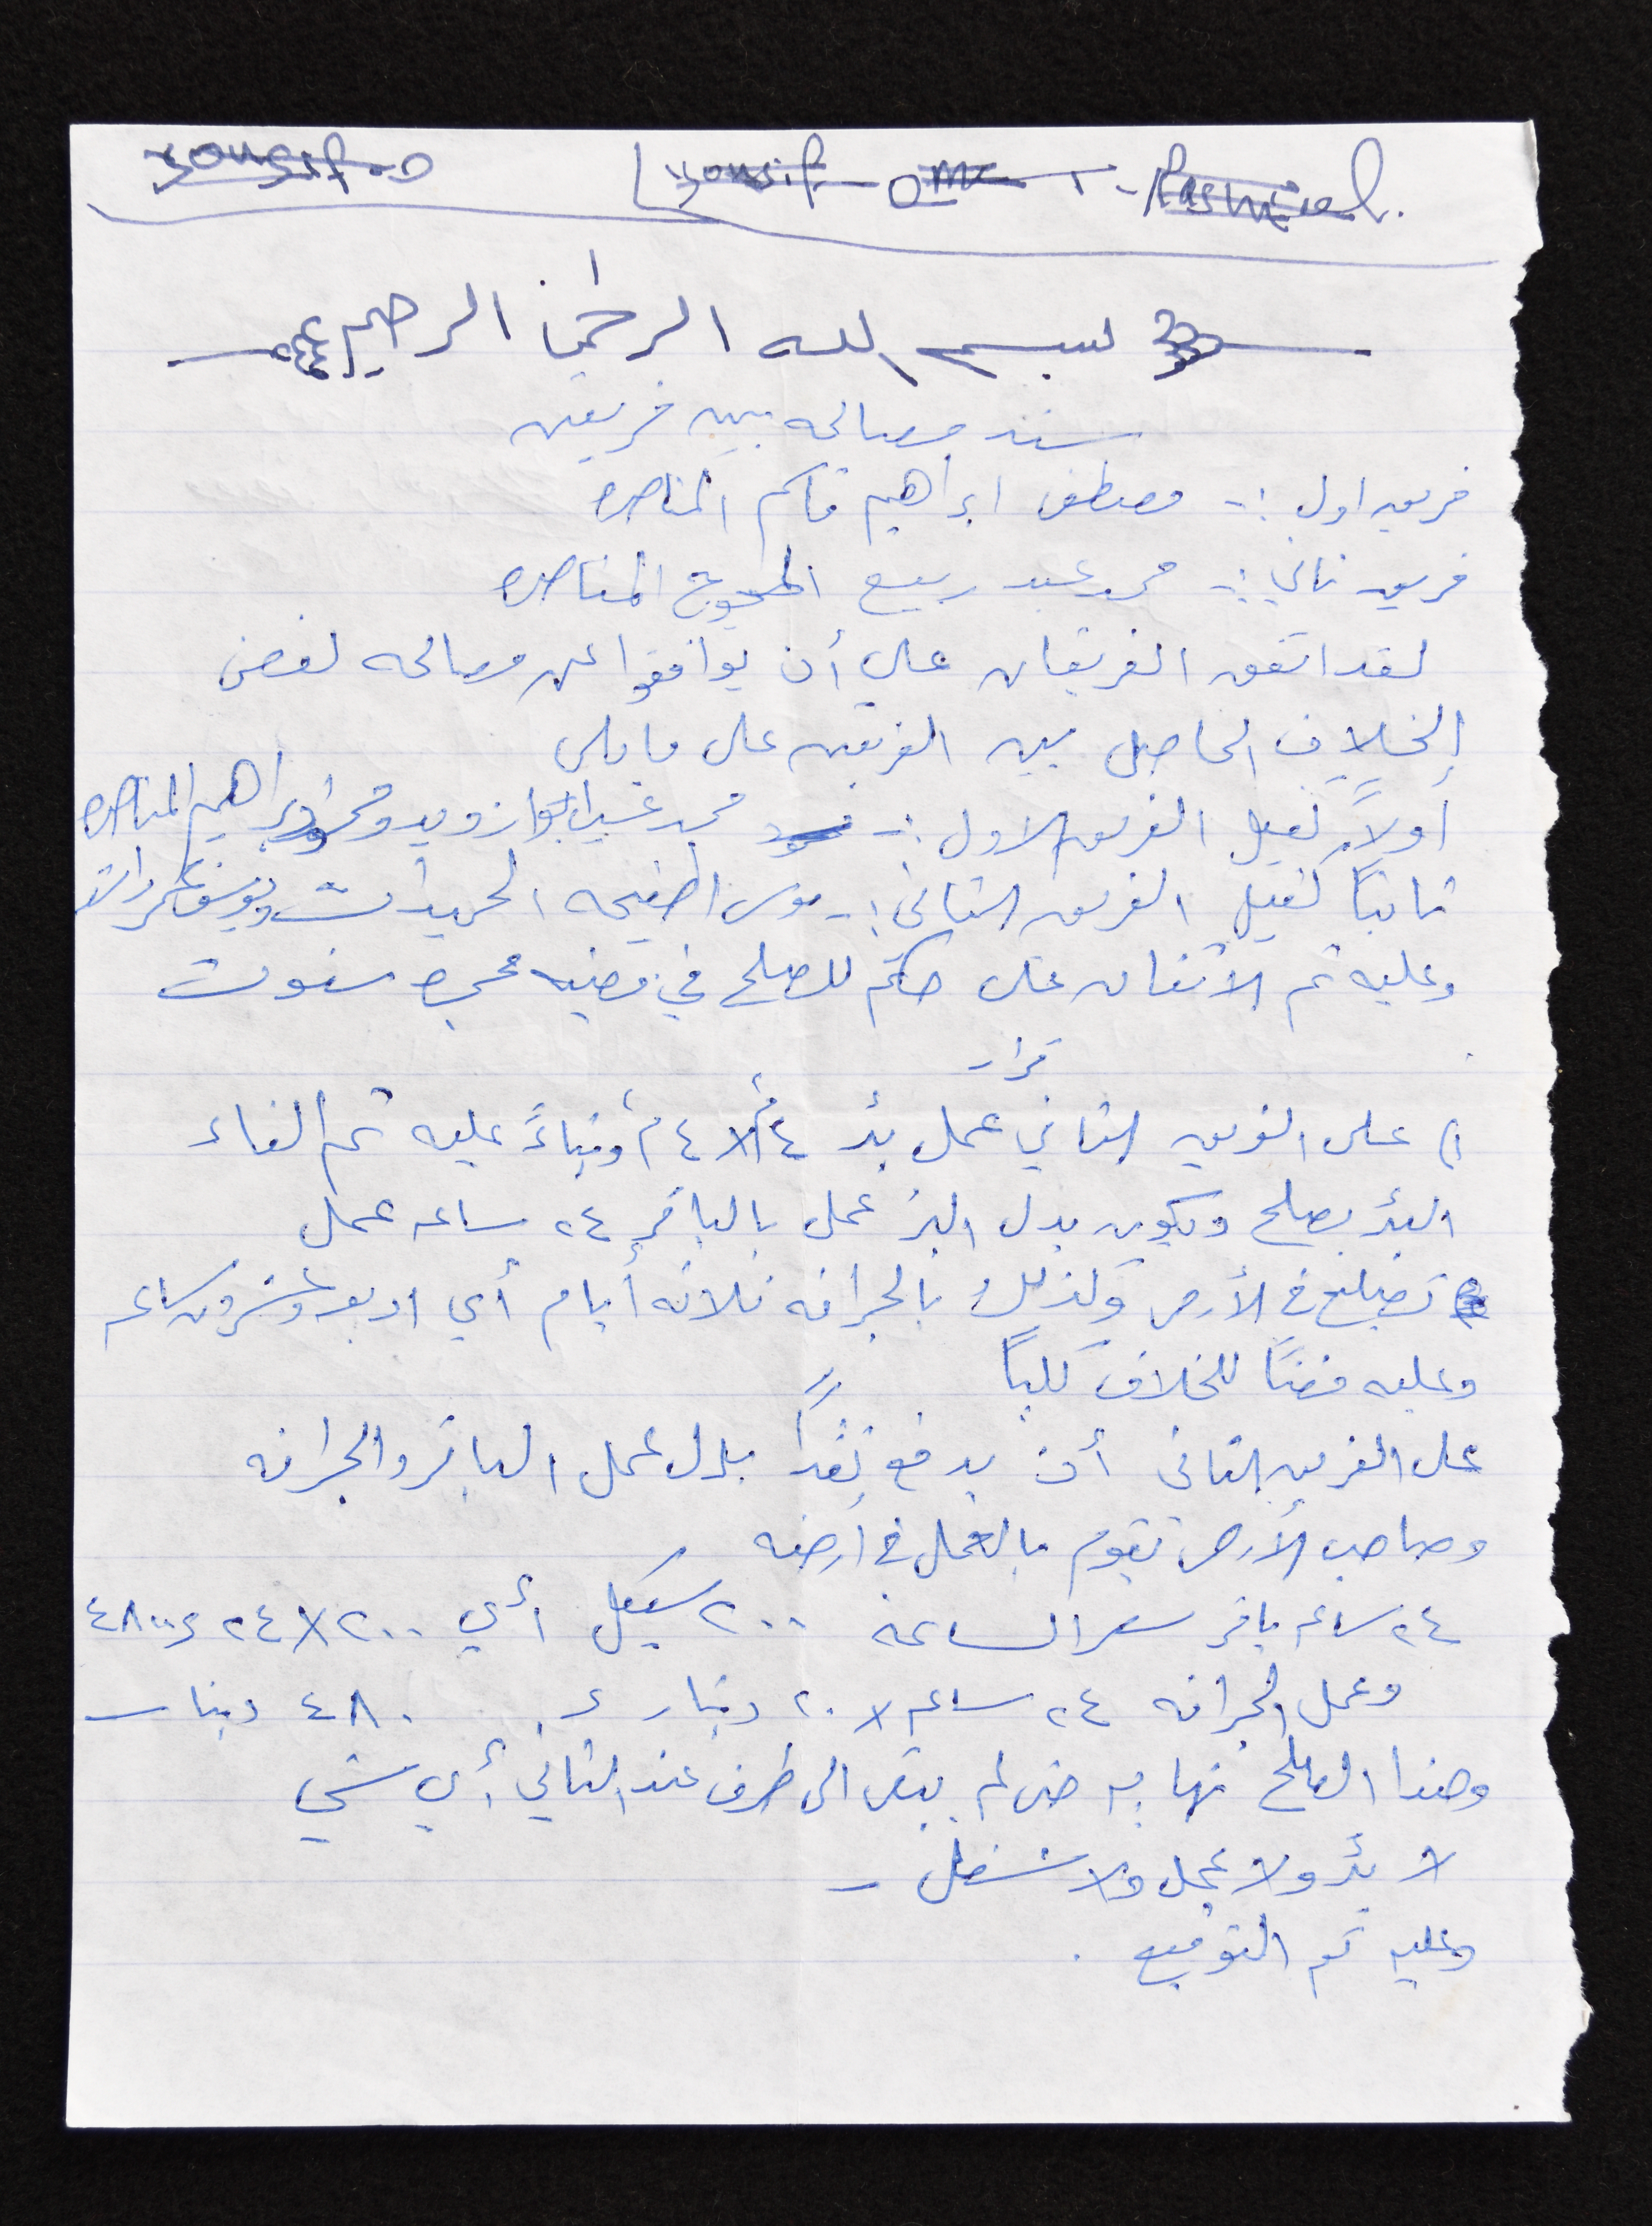 yousif o yousif omer Rashied.
بسم الله الرحمن الرحيم
سند مصالحه بين فريقين
فريق اول :- مصطفى ابراهيم قاسم المناصره
فريق ثاني :- محمد عبد ربيع المناصره
لقد اتفق الفريقان على أن يوافقوا على مصالحه لفض
الخلاف الحاصل بين الفريقين على ما يلي
أولاً كفيل الفريق الاول :- محمد ابراهيم المناصره
ثانياً كفيل الفريق الثاني :- موسى اطفيحه الحميدات ويوسف عمر راشد
وعليه تم الاتفاق على حكم للصلح في قضيه سنوت
قرار
١) على الفريق الثاني عمل بئر ٤م x ٤م وبناءً عليه تم الغاء
البئر بصلح ويكون بدل البئر عمل بالباقر ٢٤ ساعه عمل
في الأرض وكذلك بالجرافه ثلاثه أيام أي اربعه وعشرون ساعه
وعليه فضاً للخلاف كلياً
على الفريق الثاني أن يدفع نقداً بدل عمل الباقر والجرافه
وصاحب الأرض يقوم بالعمل في أرضه
٢٤ ساعه باقر سعر الساعة ٢٠٠ شيكل أي ٢٠٠ x ٢٤ = ٤٨٠٠
وعمل الجرافه ٢٤ ساعه x ٢٠ دينار = ٤٨٠ دينار
وهذا الصلح نهايه حتى لم يبقى الى طرف عند الثاني أي شيء
لا بئر ولا عمل ولا شغل
وعليه تم التوقيع .